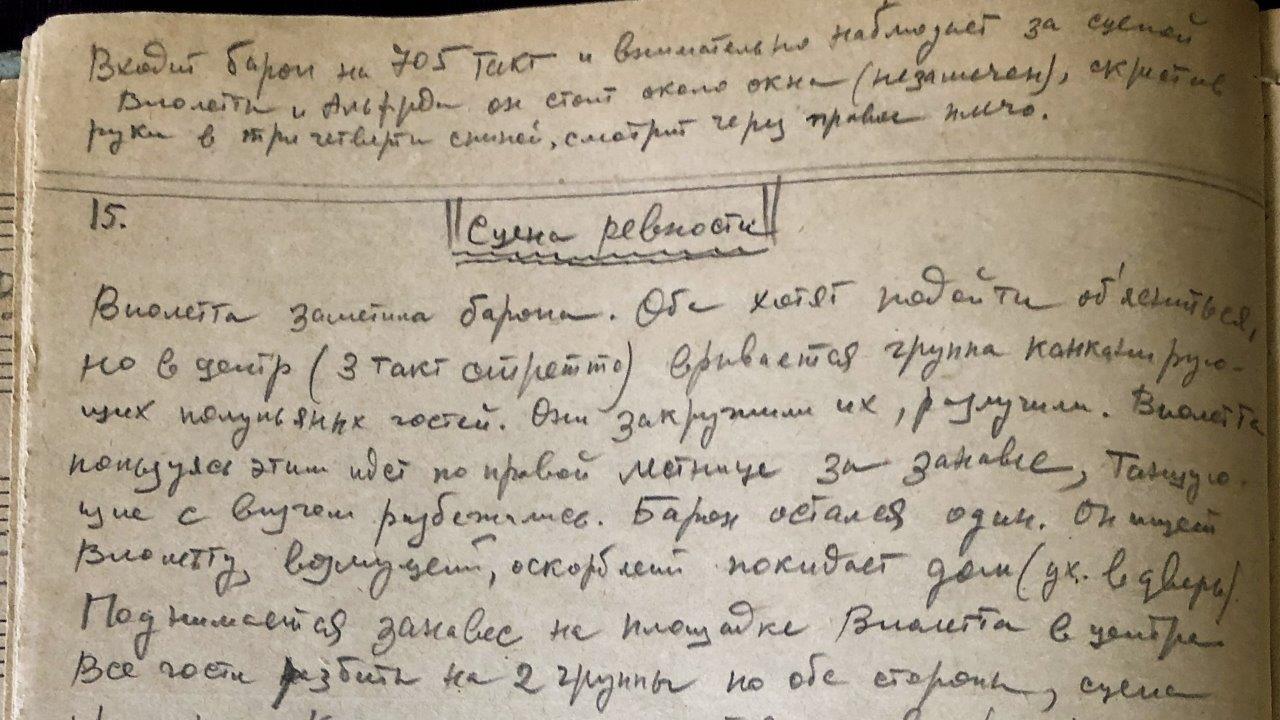 Входит барон на 705 такт и внимательно наблюдает за сценой
Виолетты и Альфреда он стоит около окна (незамечен), скрестив
руки в три четверти спиной, смотрит через правое плечо.
15.
Сцена ревности
Виолетта заметила барона. Оба хотят подойти об'ясниться,
но в центр (3 такт стретто) врывается группа канканирую-
щих полупьяных гостей. Они закружили их, разлучили. Виолетта
пользуясь этим идет по правой лестнице за занавес, Танцую-
щие с визгом разбежались. Барон остался один. Он ищет
Виолетту, возмущен, оскорблен покидает дом (ух. в дверь).
Поднимается занавес на площадке Виолетта в центре
Все гости разбиты на 2 группы по обе стороны, сцена